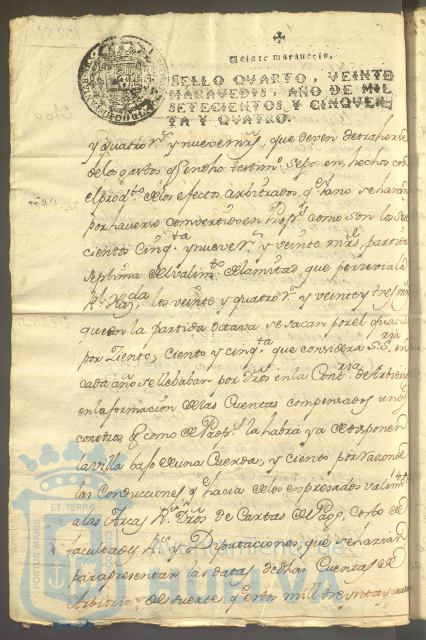 Veinte marauedis.
SELLO QVARTO, VEINTE
MARAVEDIS, AÑO DE MIL
SETECIENTOS Y CINQVEN-
TA Y QVATRO.
y quatro r.s y nueve mrs, que deven detraherse
de los gastos q.e en dho testim.o se pon en hechos con
el prod.to de los efectos arbitrados, q.e este año se harán
por haverse convertido en Prop.s como son los
ciento cinq.ta y nueve r.s y veinte mrs, partida
septima del valim.to de la mitad, que percevia la
R.l Haz.da, los veinte y quatro r.s y veinte y tres mrs
que en la partida octava se sacan por el quatro
por Ziento, ciento y cinq.ta que considera S.S.ria en
cada año se llebaban por dros en la Cont.ria de Arbitrios
en la formacion de las Cuentas compensados unos
con otros q.e como de Prop.s la habrá ya de disponer
la villa bajo de una Cuerda, y ciento por razon de
las Conducciones q.e hacia de los expresados valim.tos
a las Arcas R.s dros de Cartas de Pago, costo de
facultades R.s y Diputaciones, que se harian
para presentar las datas de dhas Cuentas de
Arbitrios, de suerte q.e estos mill treynta y
PORTUS MARIS
ET TERRAE
Ayuntamiento de
HUELVA